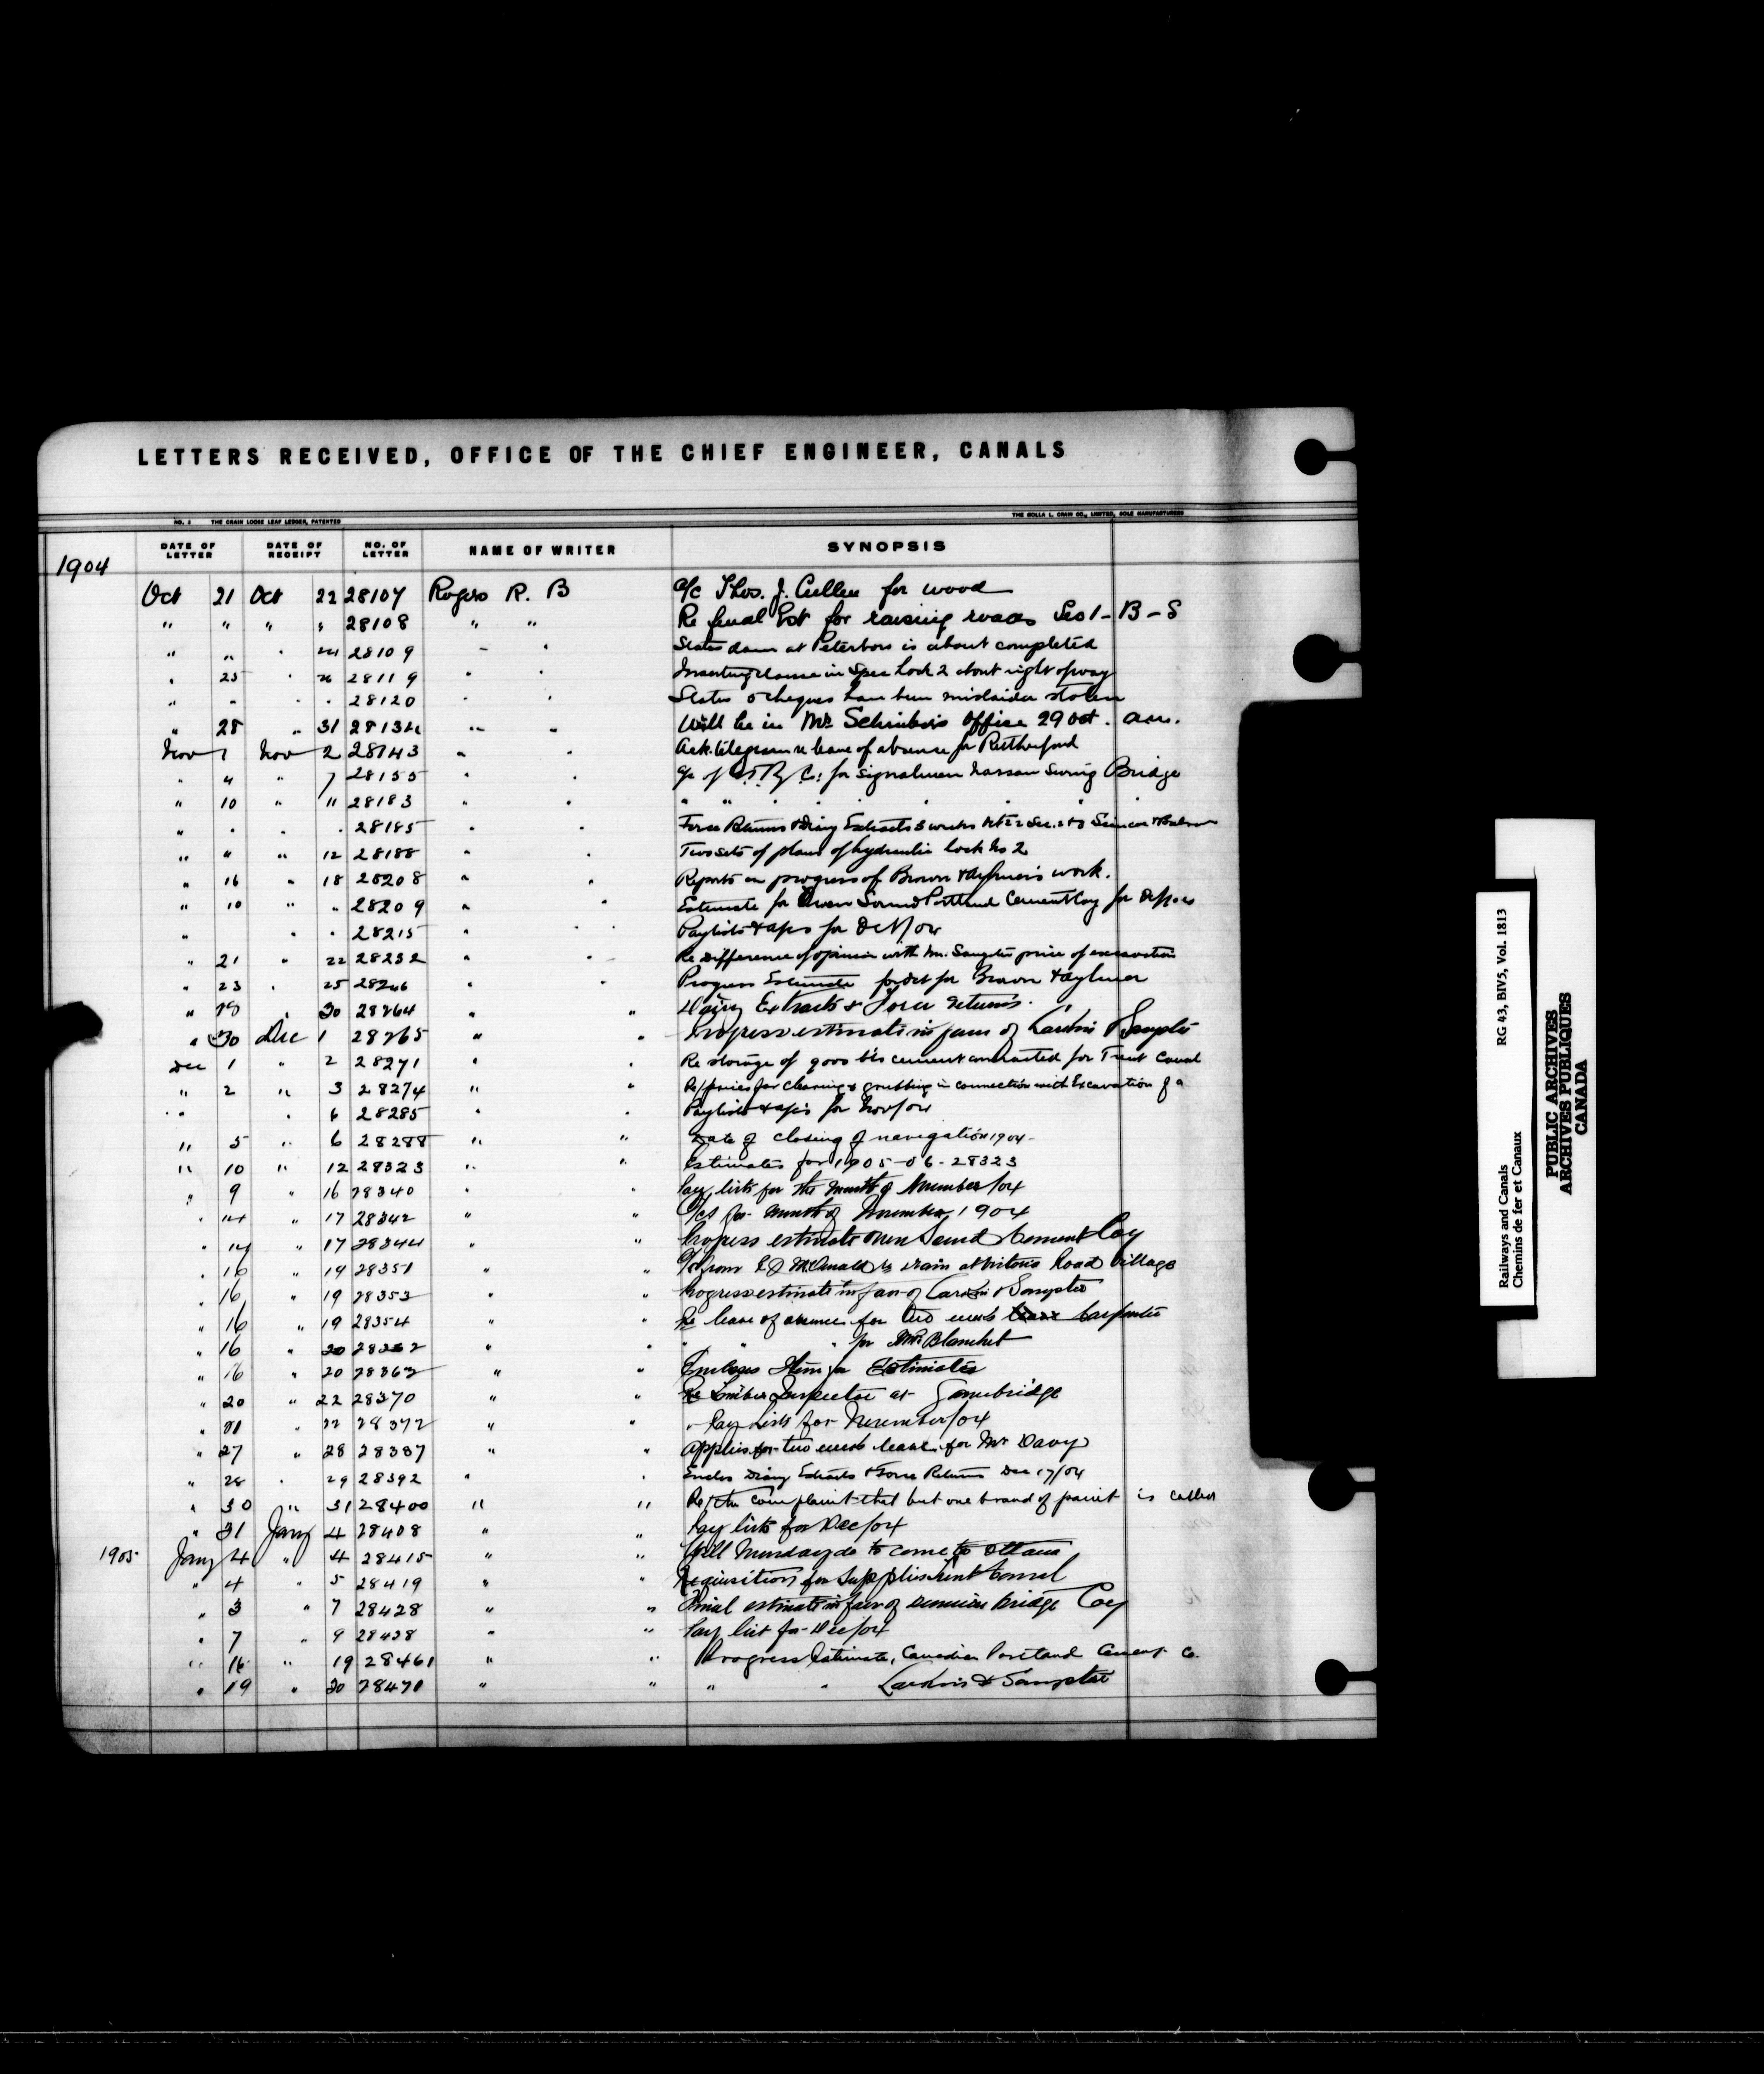 LETTERS RECEIVED, OFFICE OF THE CHIEF ENGINEER, CANALS
NO. 3 THE CRAIN LOOSE LEAF LEDGER, PATENTED THE ROLLA L. CRAIN CO., LIMITED, SOLE MANUFACTURERS
DATE OF LETTER DATE OF RECEIPT NO. OF LETTER NAME OF WRITER SYNOPSIS
1904
Oct 21 Oct 22 28107 Rogers R. B a/c Thos. J. Cullen for wood
" " " " 28108 " " Re final Est for raising roads Sec 1 - B - S
" " " 24 28109 " " States dam at Peterboro is about completed
" 25 " 26 28119 " " Inserting clause in Spec Lock 2 about right of way
" " " " 28120 " " States cheques have been mislaid or stolen
" 28 " 31 28134 " " Will be in Mr Schreiber's office 29 Oct. a.m.
Nov 1 Nov 2 28143 " " Ack. telegram re leave of absence for Rutherford
" 4 " 7 28155 " " a/c of G.T.Ry Co: for signalmen Nassau Swing Bridge
" 10 " 11 28183 " " " " " " " " "
" " " " 28185 " " Force Returns & Diary Extracts 3 weeks Oct 22 Sec. 2 & 3 Simcoe & Balsam
" " " 12 28188 " " Two sets of plans of hydraulic lock No 2
" 16 " 18 28208 " " Reports on progress of Brown & Aylmer's work.
" 10 " " 28209 " " Estimate for Owen Sound Portland Cement Coy for
" " " 28215 " " Paylists & a/cs for Oct/04
" 21 " 22 28232 " " Re difference of opinion with Mr. Sangster price of excavation
" 23 " 25 28246 " " Progress Estimate for Oct for Brown & Aylmer
" 28 " 30 28264 " " Diary Extracts & Force returns.
" 30 Dec 1 28265 " " Progress estimate in favor of Larkin & Sangster
Dec 1 " 2 28271 " " Re storage of 9000 bls cement contracted for Trent Canal
" 2 " 3 28274 " " Re/prices for clearing & grubbing in connection with Excavation of a
" " 6 28285 " " Paylists & a/cs for Nov/04
" 5 " 6 28288 " " Date of closing of navigation 1904
" 10 " 12 28323 " " Estimates for 1905-06-28323
" 9 " 16 28340 " " Pay lists for the month of November/04
" 14 " 17 28342 " " a/cs for month of November, 1904
" 14 " 17 28344 " " Progress estimate Owen Sound Cement Coy
" 16 " 19 28351 " " a/c from McDonald re drain at Victoria Road Village
" 16 " 19 28353 " " Progress estimate in favor of Larkin & Sangster
" 16 " 19 28354 " " Re leave of absence for two weeks
" 16 " 20 28362 " " " " " for Mr Blanchet
" 16 " 20 28363 " " Encloses Items for Estimates
" 20 " 22 28370 " " Re Timber Inspector at Gamebridge
" 21 " 22 28372 " " " Pay Lists for November/04
" 27 " 28 28387 " " Applies for two weeks leave for Mr Davy
" 28 " 29 28392 " " Encloses Diary Extracts & Force Returns Dec 17/04
" 30 " 31 28400 " " Re/the complaint that but one brand of paint is called
" 31 Jany 4 28408 " " Pay lists for Dec/04
1905 Jany 4 " 4 28415 " " Will Munday to come to Ottawa
" 4 " 5 28419 " " Requisition for Supplies Trent Canal
" 3 " 7 28428 " " Final estimate in favor of Dominion Bridge Coy
" 7 " 9 28438 " " Pay list for Dec/04
" 16 " 19 28461 " " Progress Estimate, Canadian Portland Cement Co.
" 19 " 20 28471 " " " " Larkin & Sangster
Railways and Canals RG 43, BIV5, Vol. 1813
Chemins de fer et Canaux
PUBLIC ARCHIVES
ARCHIVES PUBLIQUES
CANADA